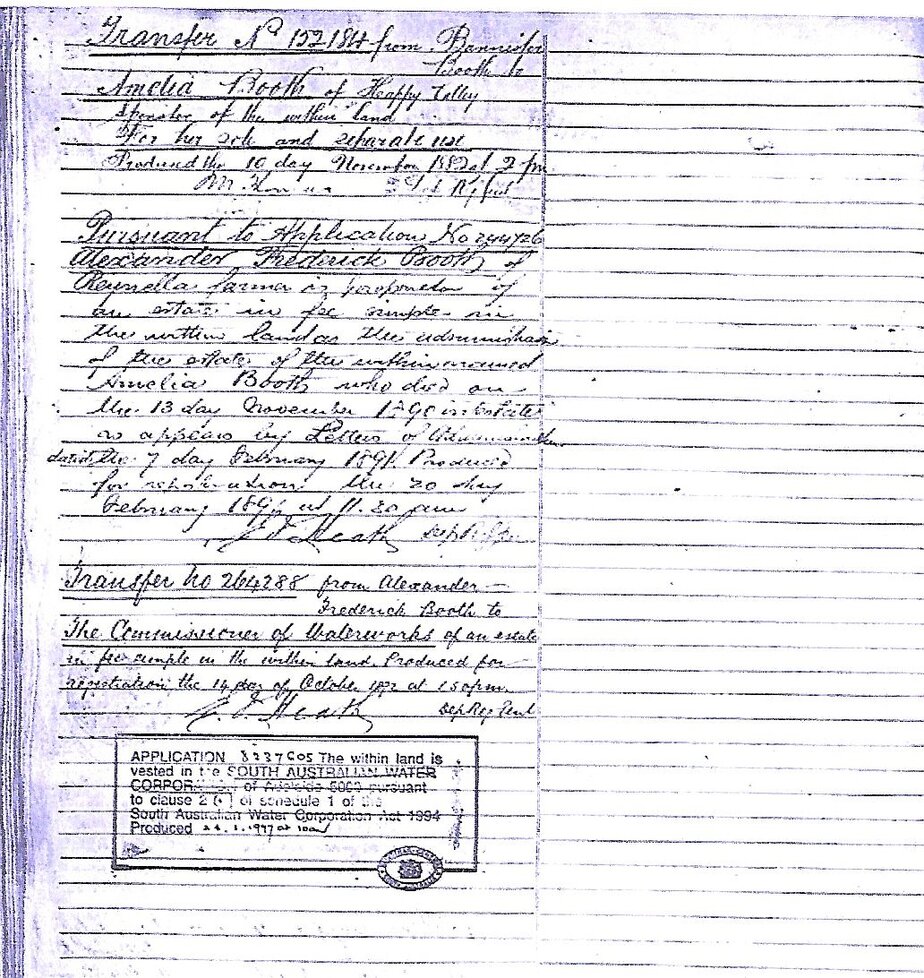 Transfer No 152184 from Bannister
Booth to
Amelia Booth of Happy Valley
Spinster of the within land
For her sole and separate use
Produced the 10 day November 1882 at 2 pm
Pursuant to Application No 244726
Alexander Frederick Booth of
Reynella farmer is proprietor of
an estate in fee simple in
the within land as the administrator
of the estate of the within named
Amelia Booth who died on
the 13 day November 1890 intestate
as appears by Letters of Administration
dated the 7 day February 1891. Produced
for registration the 20 day
February 1891 at 11.20 am
J T Heath Dep Reg
Transfer No 264288 from Alexander —
Frederick Booth to
The Commissioner of Waterworks of an estate
in fee simple in the within land. Produced for
registration the 14 day of October 1892 at 1 50 pm.
J. T. Heath Dep Reg Genl
APPLICATION 8237605 The within land is
vested in the SOUTH AUSTRALIAN WATER
CORPORATION of Adelaide 5000 pursuant
to clause 2 of schedule 1 of the
South Australian Water Corporation Act 1994
Produced 24.1.1997 at 10am